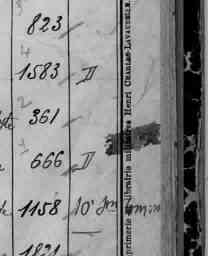 3
823
4
1583 II
2
361
666 II
1158 10e
1821
Imprimerie et librairie militaires Henri CHARLES-LAVAUZELLE.